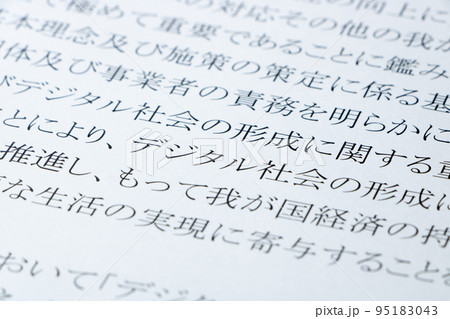 の対応その他の我が
て極めて重要であることに鑑み
本理念及び施策の策定に係る基
体及び事業者の責務を明らかに
デジタル社会の形成に関する重
とにより、デジタル社会の形成に
推進し、もって我が国経済の持
な生活の実現に寄与すること
おいて「デジタ
pixta.jp - 95183043